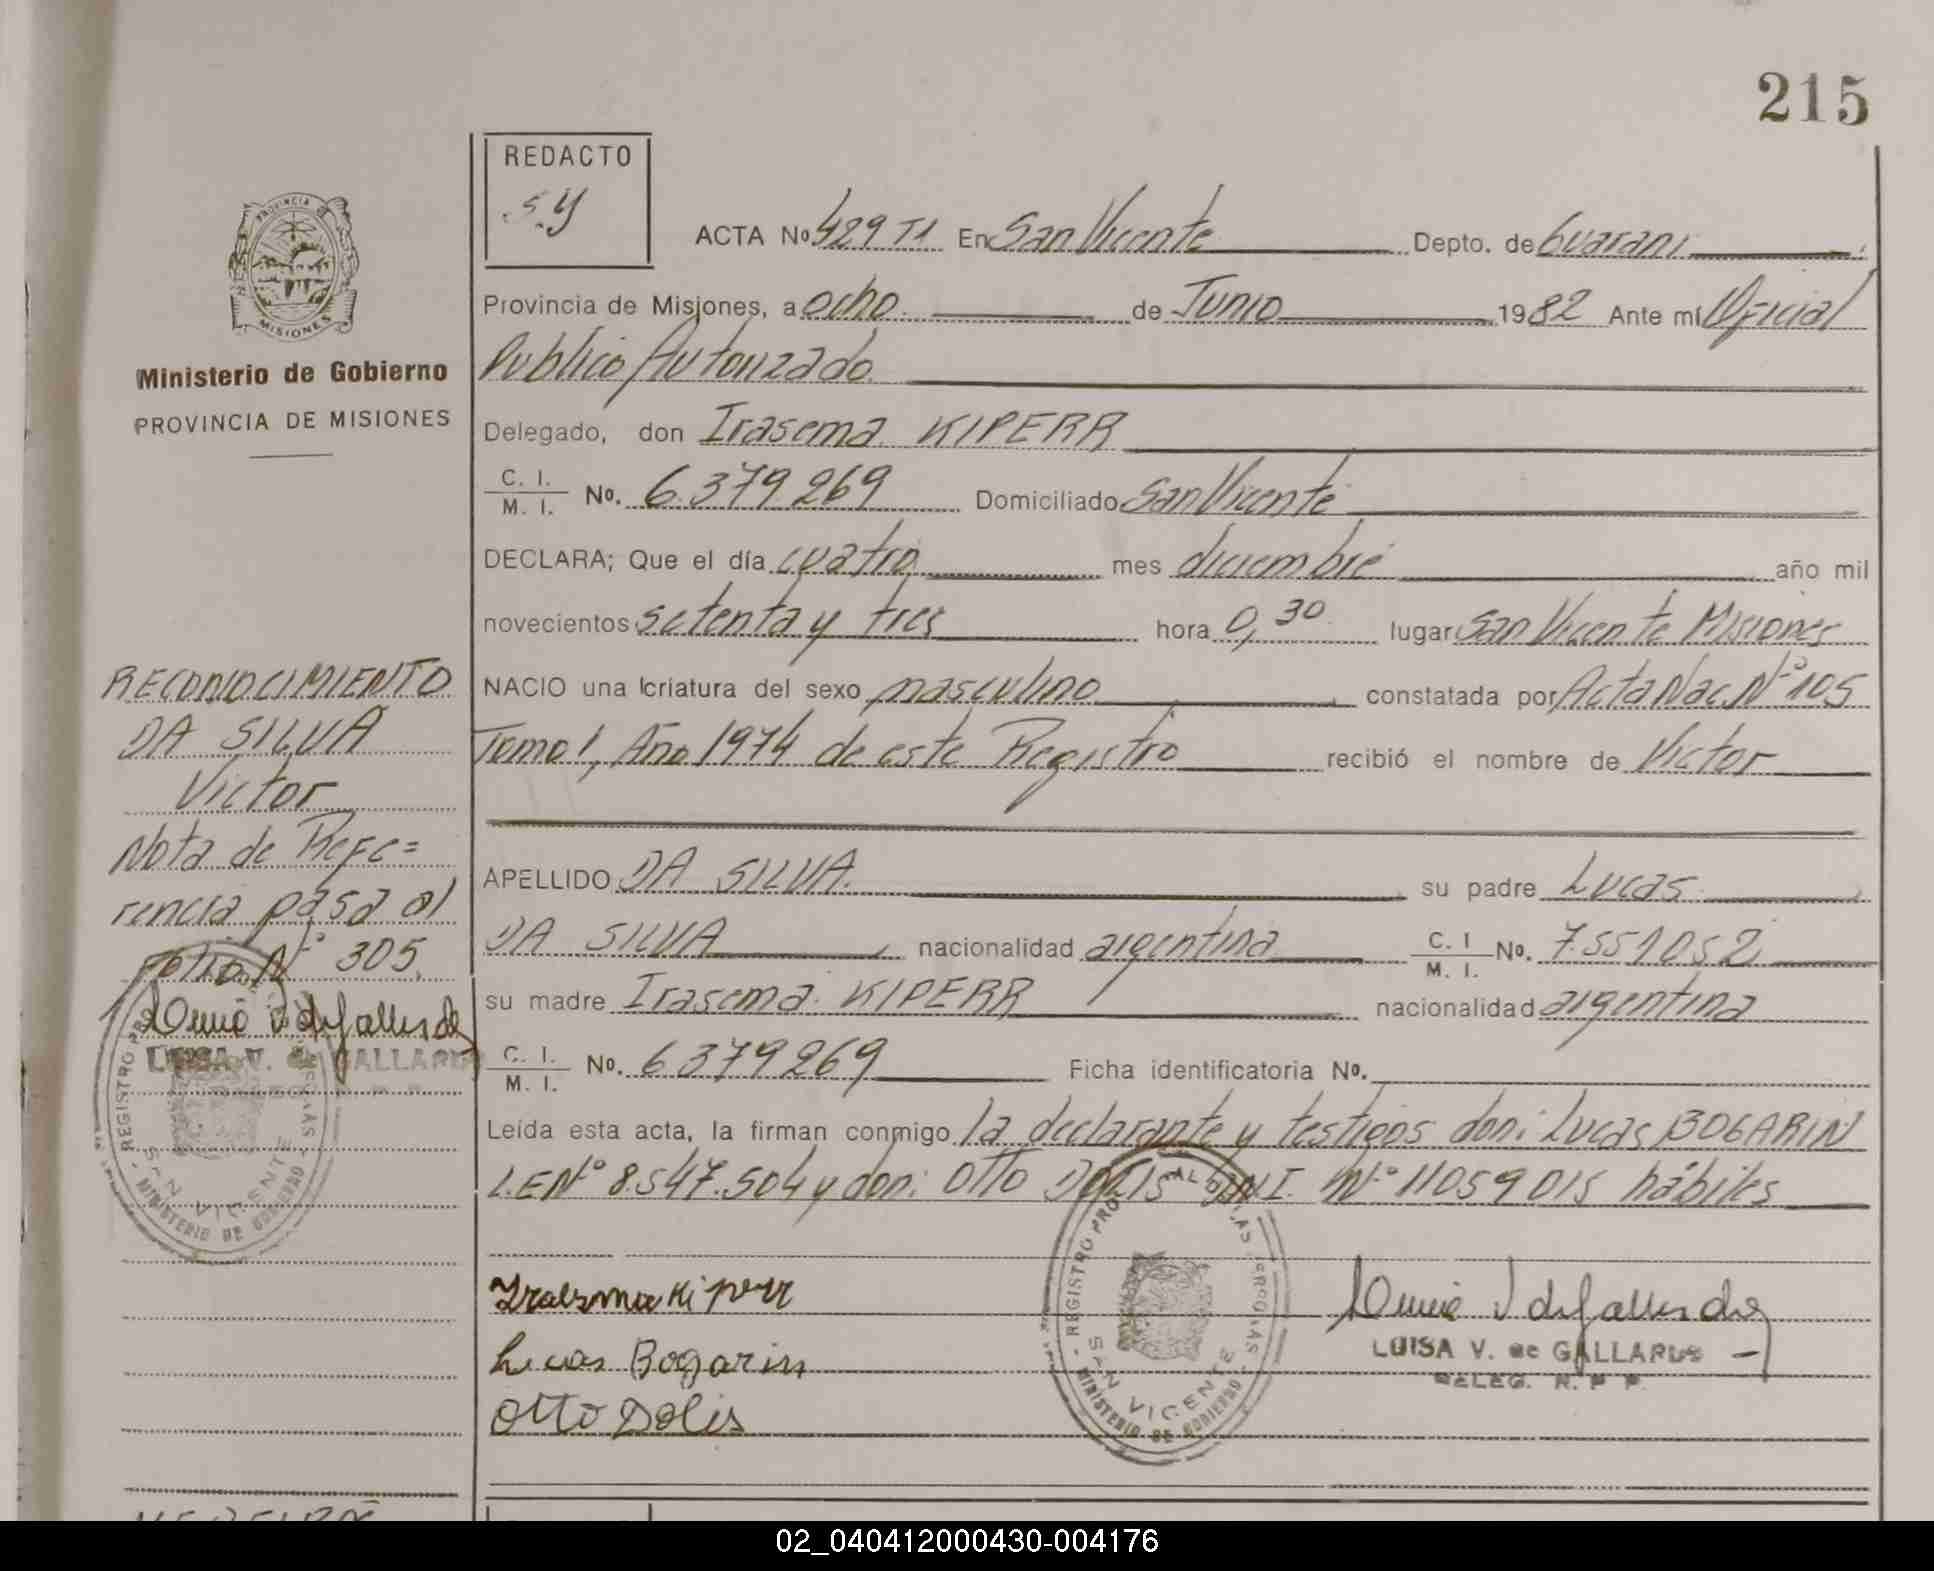 215
REDACTO
S.Y
ACTA No 429 T1 En San Vicente Depto. de Guarani
Provincia de Misiones, a ocho de Junio 1982 Ante mí Oficial
Publico Autorizado
Delegado, don Irasema KIPERR
C. I. / M. I. No. 6.379.269 Domiciliado San Vicente
DECLARA; Que el día cuatro mes diciembre año mil
novecientos setenta y tres hora 0,30 lugar San Vicente Misiones
NACIO una criatura del sexo masculino constatada por Acta Nac. Nº 105
Tomo 1, Año 1974 de este Registro recibió el nombre de Victor
APELLIDO DA SILVA su padre Lucas
DA SILVA nacionalidad argentina C. I / M. I. No. 7.551052
su madre Irasema KIPERR nacionalidad argentina
C. I. / M. I. No. 6379269 Ficha identificatoria No.
Leída esta acta, la firman conmigo la declarante y testigos don: Lucas BOGARIN
L.E Nº 8.547.504 y don: Otto DOLIS DNI. Nº 11059015 hábiles
Irasema Kiperr
Lucas Bogarin
Otto Dolis
LUISA V. de GALLARDO
DELEG. R. P. P.
REGISTRO PRO AL DE LAS PERSONAS
SAN VICENTE
MINISTERIO DE GOBIERNO
PROVINCIA DE
MISIONES
Ministerio de Gobierno
PROVINCIA DE MISIONES
RECONOCIMIENTO
DA SILVA
Victor
Nota de Refe=
rencia pasa al
Folio Nº 305.
LUISA V. de GALLARDO
REGISTRO PRO
SAN VICENTE
MINISTERIO DE GOBIERNO
02_040412000430-004176